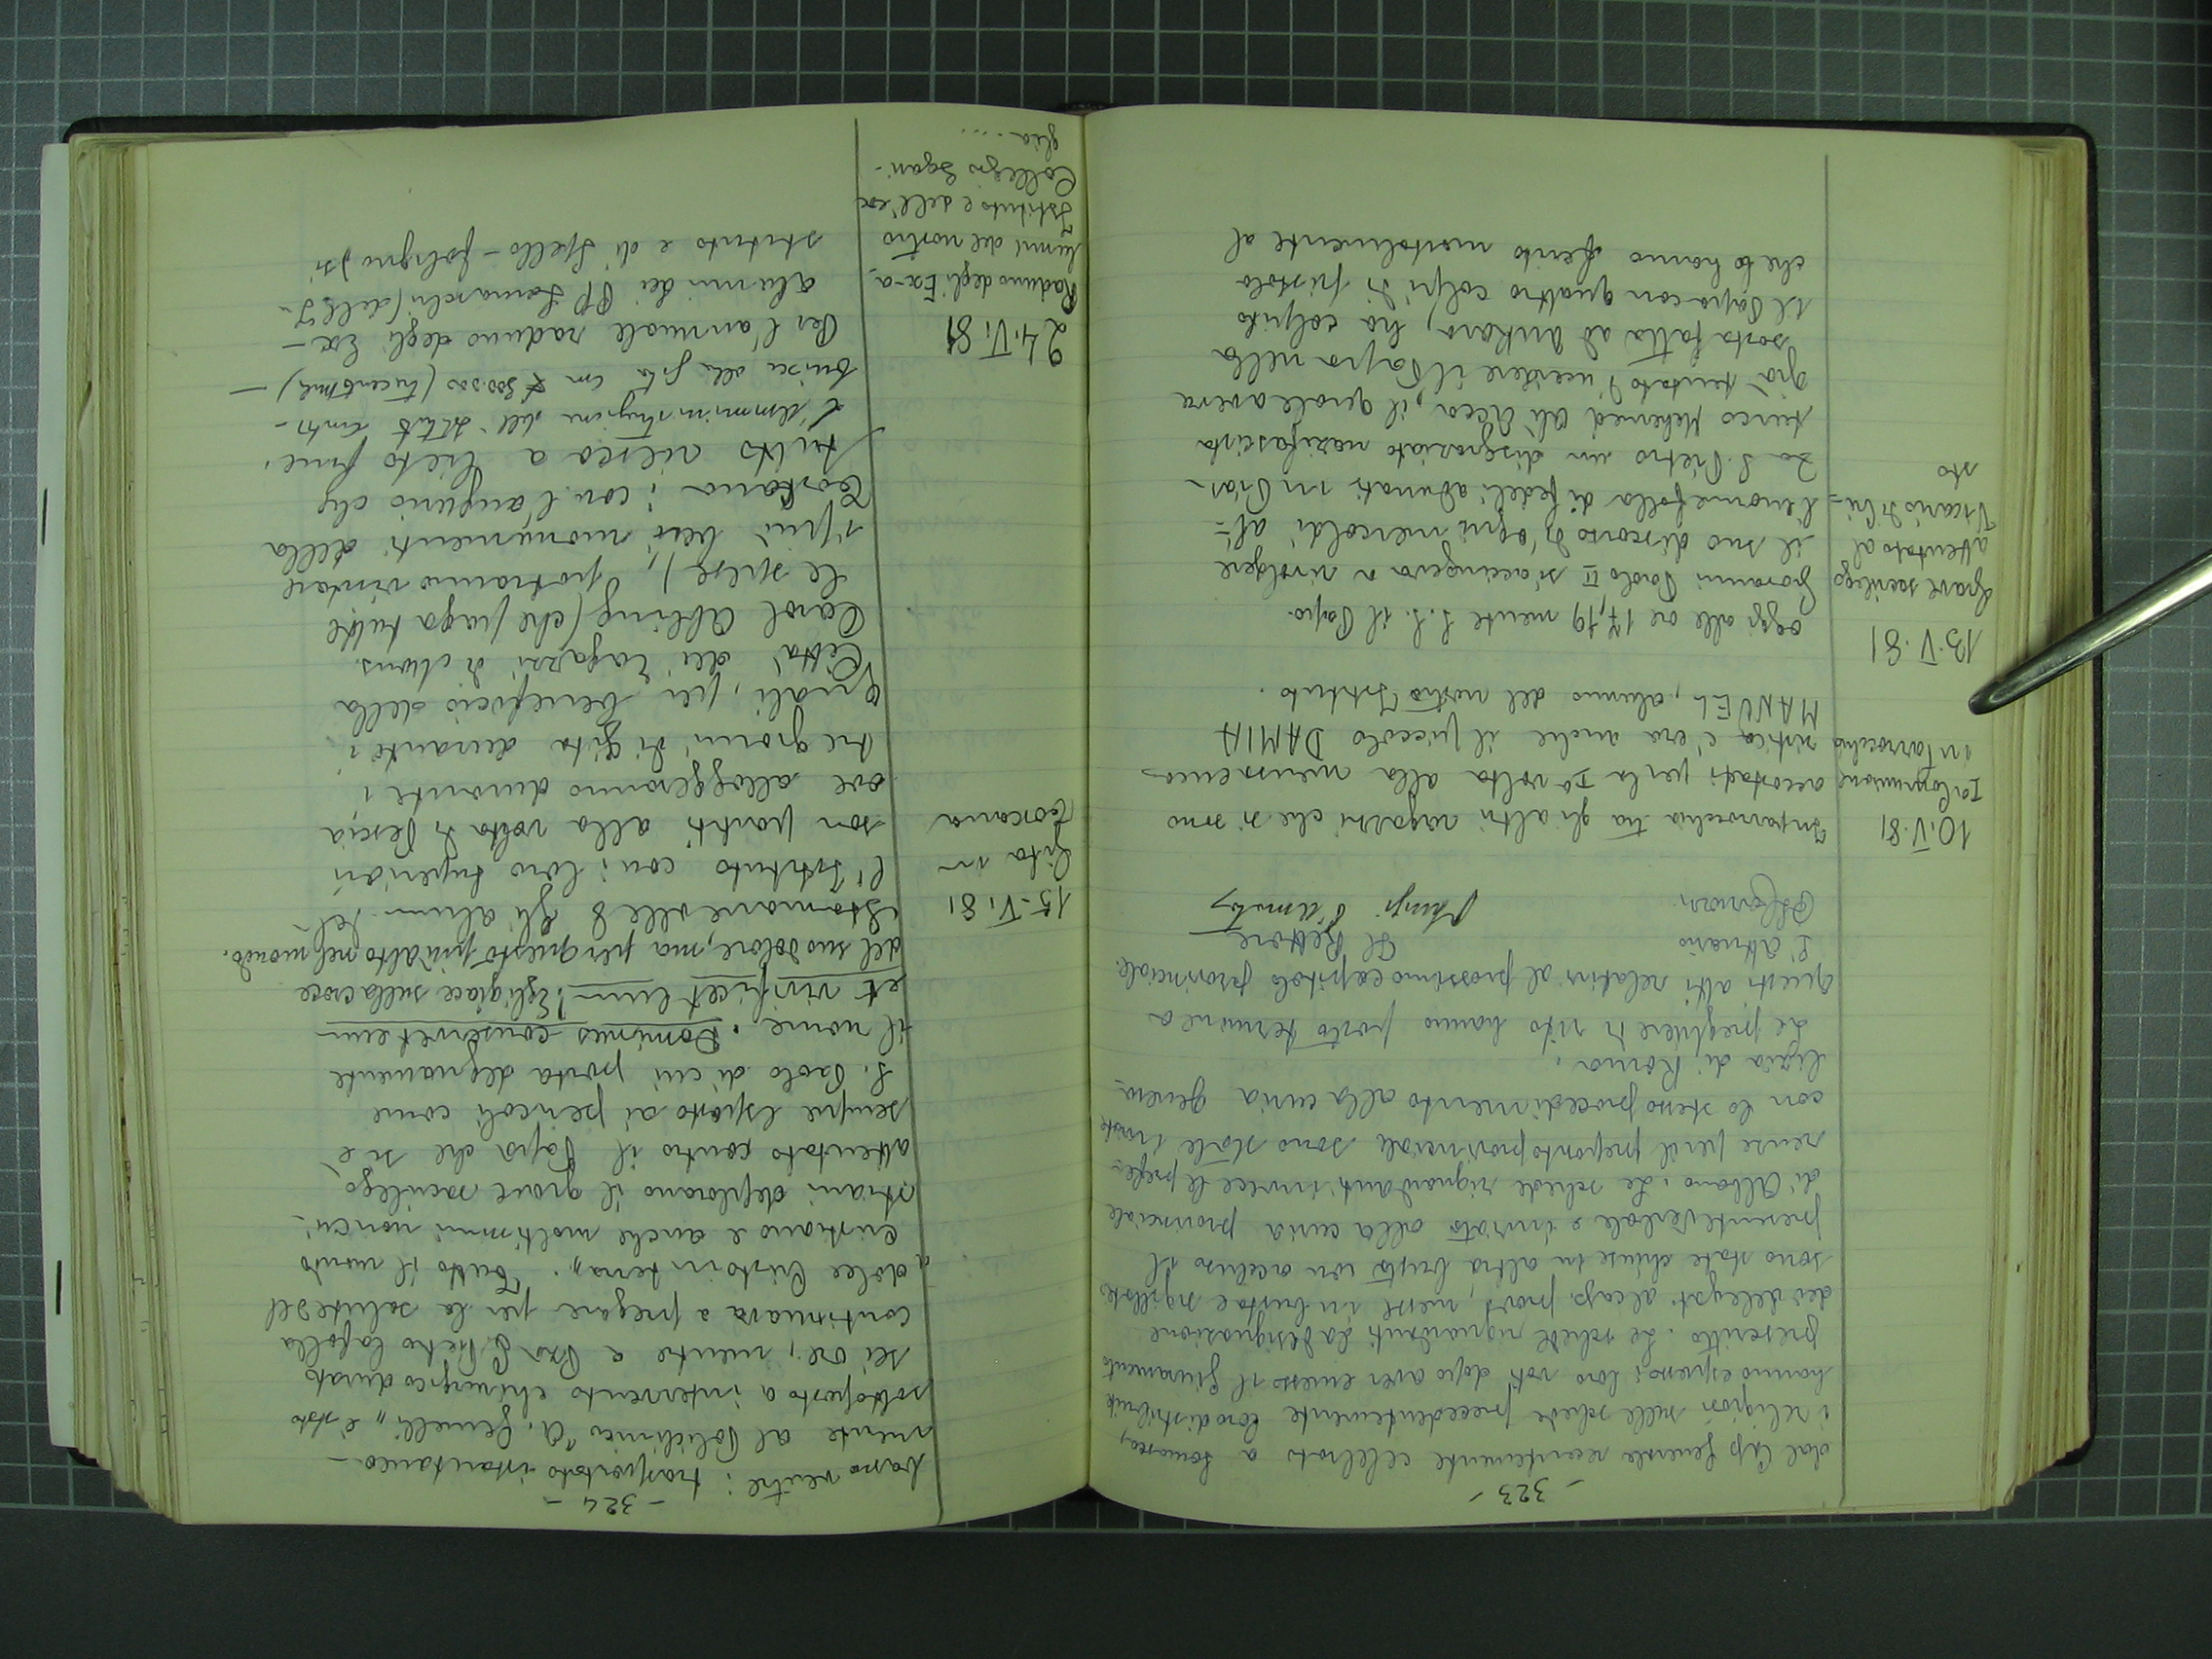 - 323 -
dal Cap. Generale recentemente celebrato a Somasca,
i religiosi sulle schede precedentemente loro distribuite
hanno espresso i loro voti dopo aver emesso il giuramento
prescritto. Le schede riguardanti la designazione
dei delegati al cap. prov., messe in busta e sigillate
sono state chiuse in altra busta con accluso il
presente verbale e inviato alla curia provinciale
di Albano. Le schede riguardanti invece le prefe-
renze per il preposto provinciale sono state inviate
con lo stesso procedimento alla curia genera
lizia di Roma.
Le preghiere di rito hanno posto termine a
questi atti relativi al prossimo capitolo provinciale.
L'attuario Il Rettore
10.V.81
Ia Comunione
in parrocchia
In parrocchia tra gli altri ragazzi che si sono
accostati per la Ia volta alla mensa euca-
ristica c'era anche il piccolo DAMIA
MANUEL, alunno del nostro Istituto.
13.V.81
Grave sacrilego
attentato al
Vicario di Cri-
sto
Oggi alle ore 17,19 mentre S.S. il Papa
Giovanni Paolo II s'accingeva a rivolgere
il suo discorso d'ogni mercoldi al-
l'enorme folla di fedeli adunati in Piaz-
za S. Pietro un disgraziato nazifascista
turco Mehemed Alì Agca, il quale aveva
già tentato d'uccidere il Papa nella
sosta fatta ad Ankara, ha colpito
il Papa con quattro colpi di pistola
che lo hanno ferito mortalmente al
- 324 -
basso ventre: trasportato istantanea-
mente al Policlinico "A. Gemelli" è stato
sottoposto a intervento chirurgico durato
sei ore, mentre a Pza S. Pietro la folla
continuava a pregare per la salute del
"dolce Cristo in terra". Tutto il mondo
cristiano e anche moltissimi noncri-
stiani deplorano il grave sacrilego
attentato contro il Papa che si è
sempre esposto ai pericoli come
S. Paolo di cui porta degnamente
il nome. Dominus conservet eum
et vivificet eum! Egli giace sulla croce
del suo dolore, ma per questo più alto nel mondo.
15.VI.81
Gita in
Toscana
Stamane alle 8 gli alunni del-
l'Istituto con i loro superiori
son partiti alla volta di Pescia
ove alloggeranno durante i
tre giorni di gita durante i
quali, per beneficio della
Città dei Ragazzi di Mons.
Carol Abbing (che paga tutte
le spese), potranno visitare
i più bei monumenti della
Toscana: con l'augurio che
tutto riesca a lieto fine.
L'amministrazione dell'Istituto contri-
buisce alla gita con £ 300.000 (trecentomila) -
24.VI.81
Raduno degli Ex-a-
lunni del nostro
Istituto e dell'ex
Collegio Sgari-
glia....
Per l'annuale raduno degli Ex-
alunni dei PP. Somaschi (dell'I-
stituto e di Spello-Foligno) si